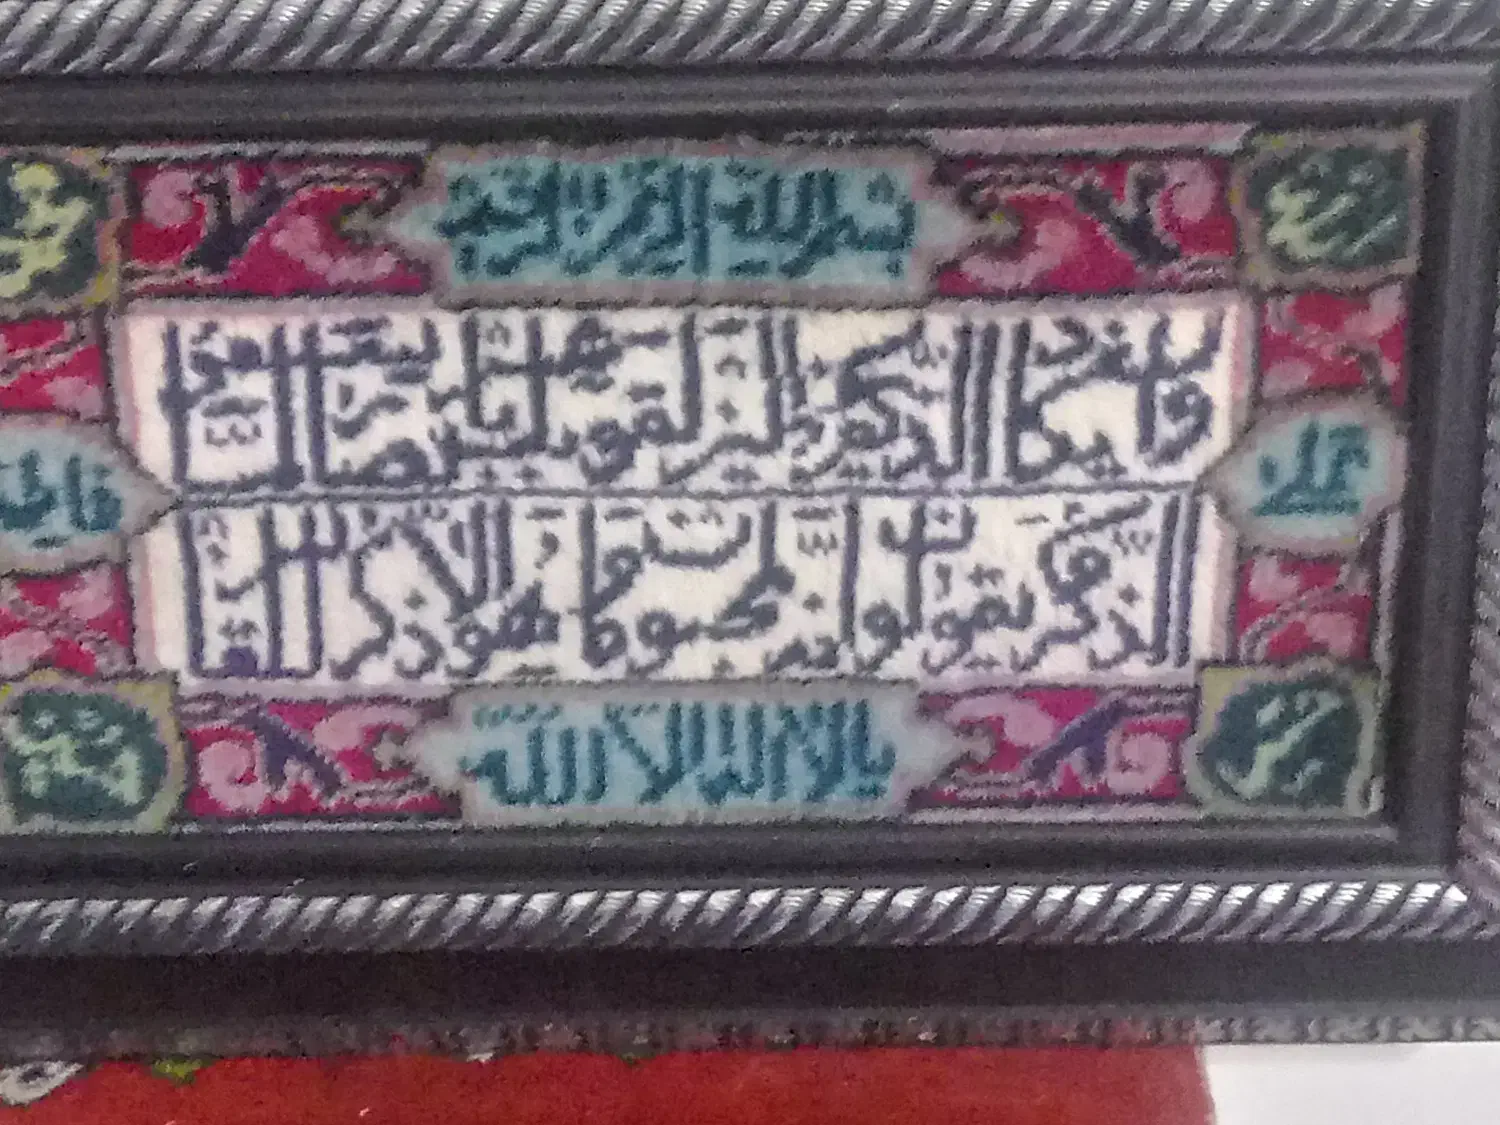 بسم الله الرحمن الرحيم
وان يكاد الذين كفروا ليزلقونك بابصارهم لما سمعوا
الذكر ويقولون انه لمجنون وما هو الا ذكر للعالمين
محمد
فاطمة
لا اله الا الله